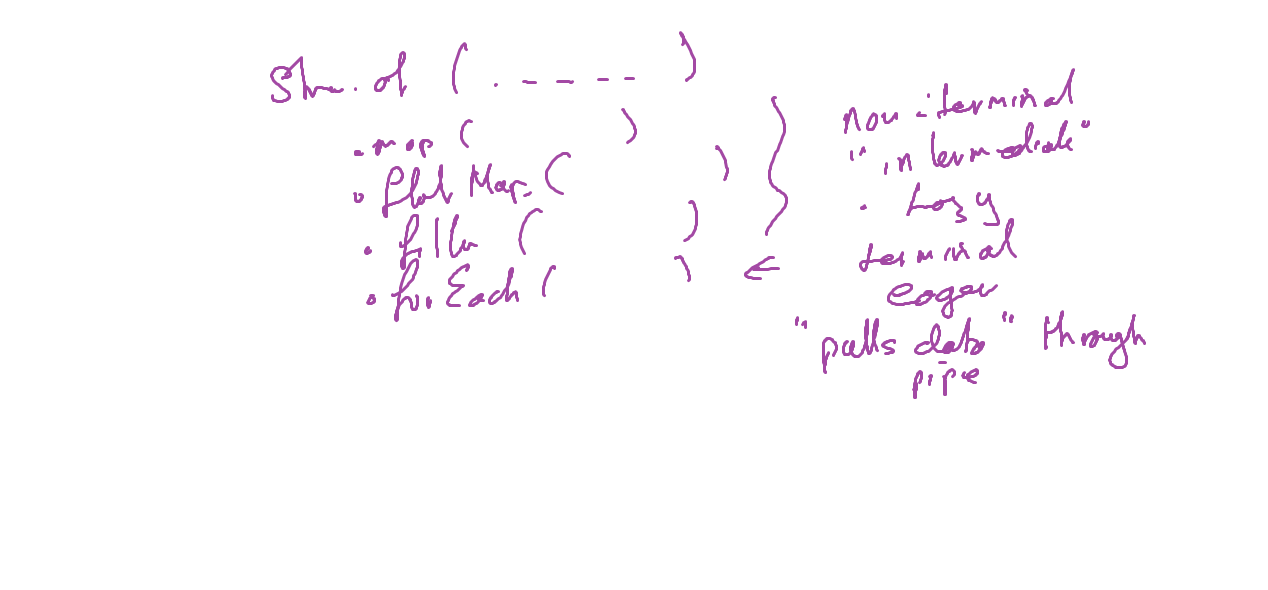 Stre.of ( . - - - - )
.map ( )
. flatMap. ( )
. filter ( )
. forEach ( ) ←
non-terminal
"intermediate"
. Lazy
terminal
eager
"pulls data" through
pipe